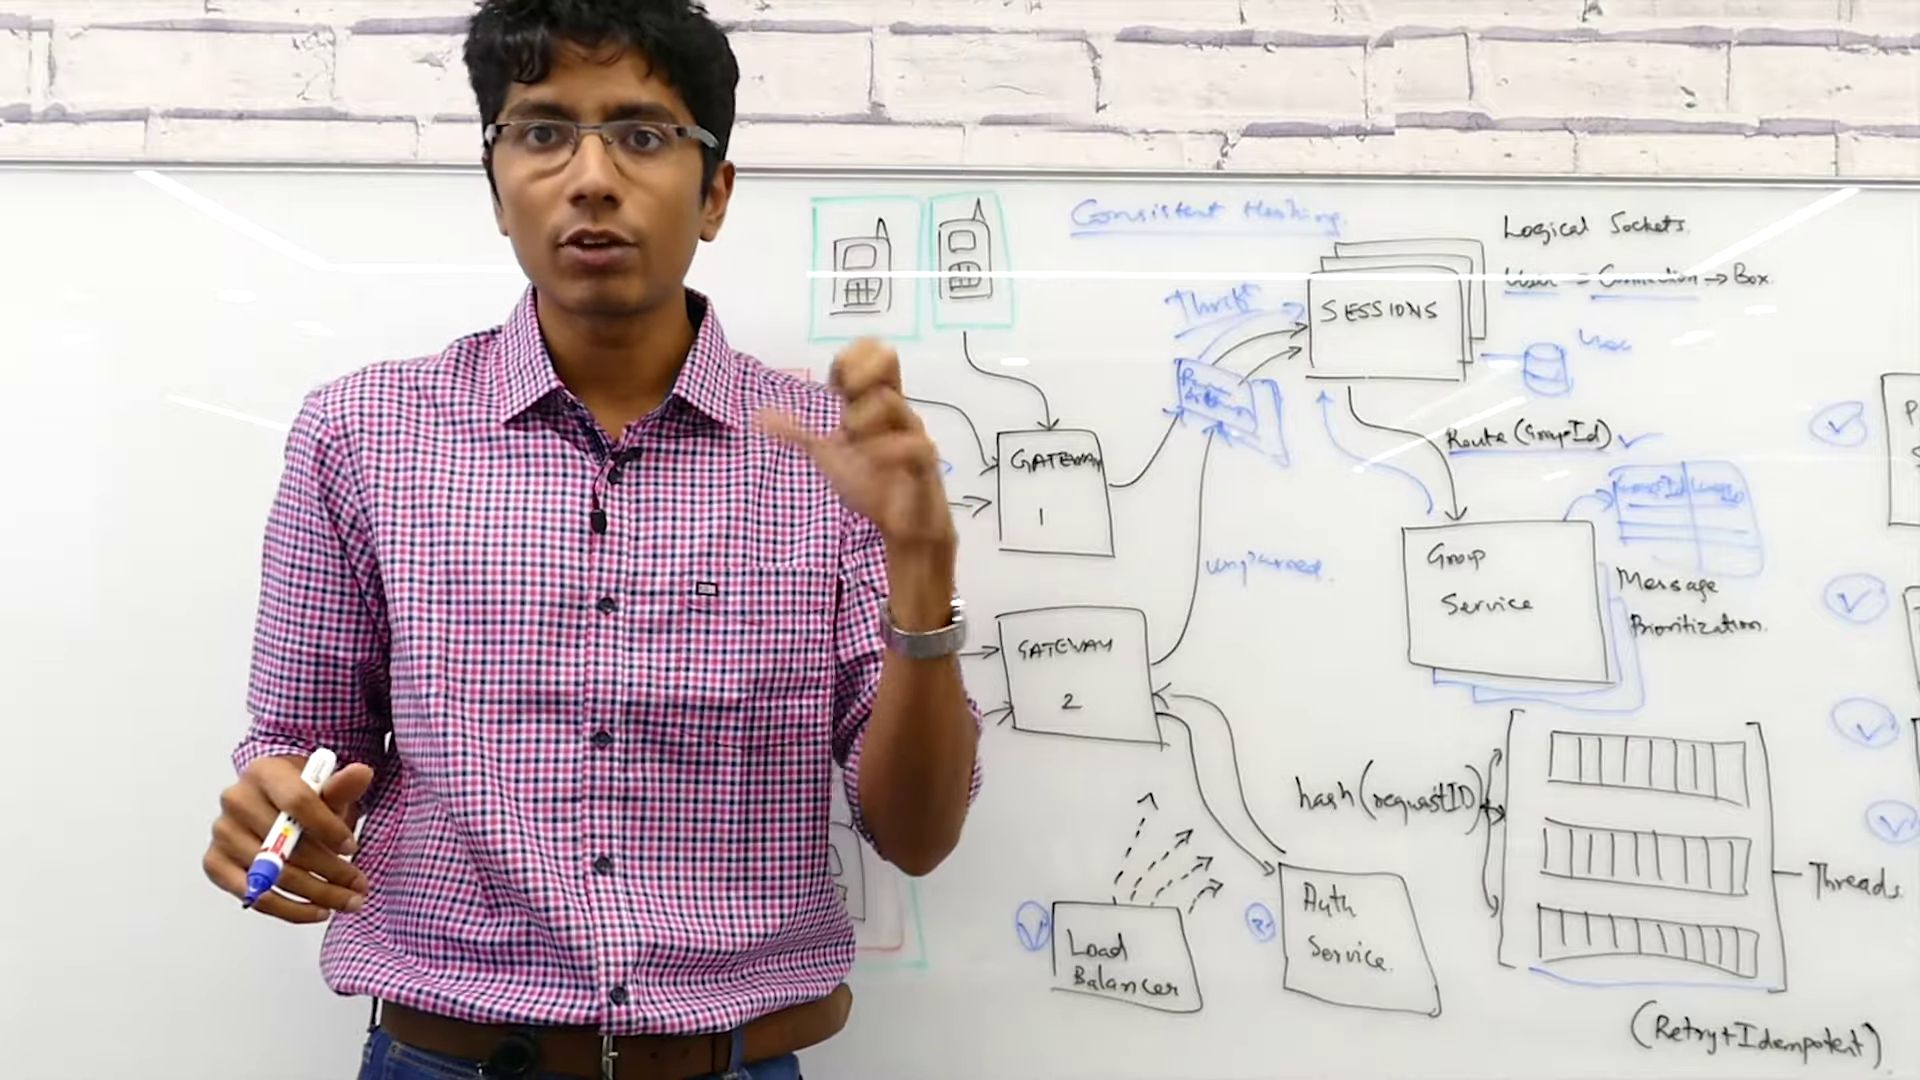 Consistent Hashing.
Logical Sockets.
User → Connection → Box.
Thrift
SESSIONS
Route (GroupId) ✓
GATEWAY
1
Unparsed.
Group
Service
Message
Prioritization.
GATEWAY
2
hash (requestID)
Threads
Load
Balancer
2
Auth
Service.
(Retry+Idempotent)
P
S